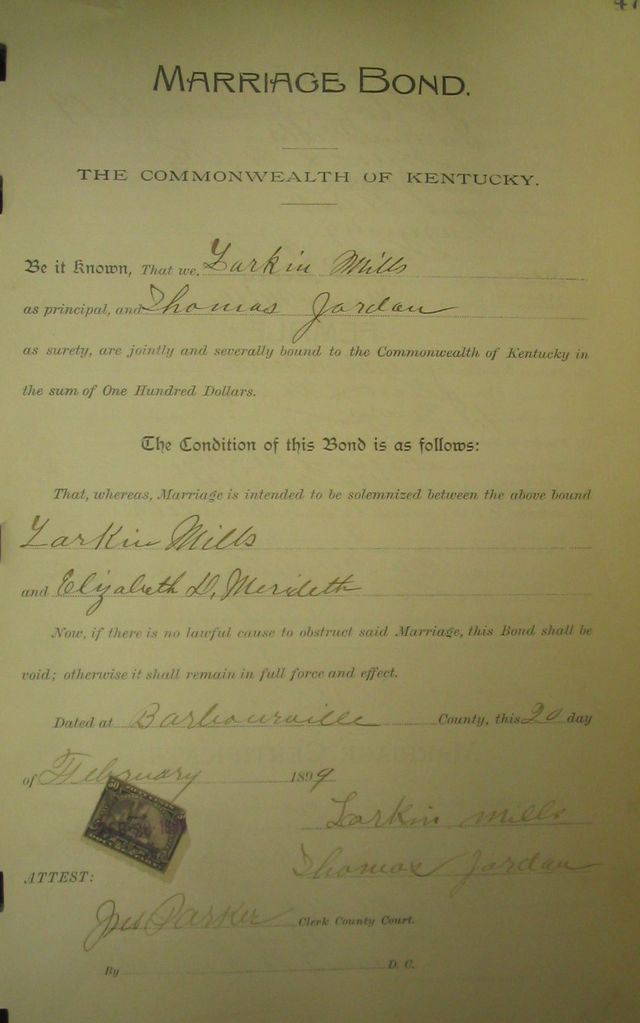 47
MARRIAGE BOND.
THE COMMONWEALTH OF KENTUCKY.
Be it Known, That we, Larkin Mills
as principal, and Thomas Jordan
as surety, are jointly and severally bound to the Commonwealth of Kentucky in
the sum of One Hundred Dollars.
The Condition of this Bond is as follows:
That, whereas, Marriage is intended to be solemnized between the above bound
Larkin Mills
and Elizabeth D, Merideth
Now, if there is no lawful cause to obstruct said Marriage, this Bond shall be
void; otherwise it shall remain in full force and effect.
Dated at Barbourville County, this 20 day
of February 1899
Larkin Mills
Thomas Jordan
ATTEST:
Parker Clerk County Court.
By D. C.